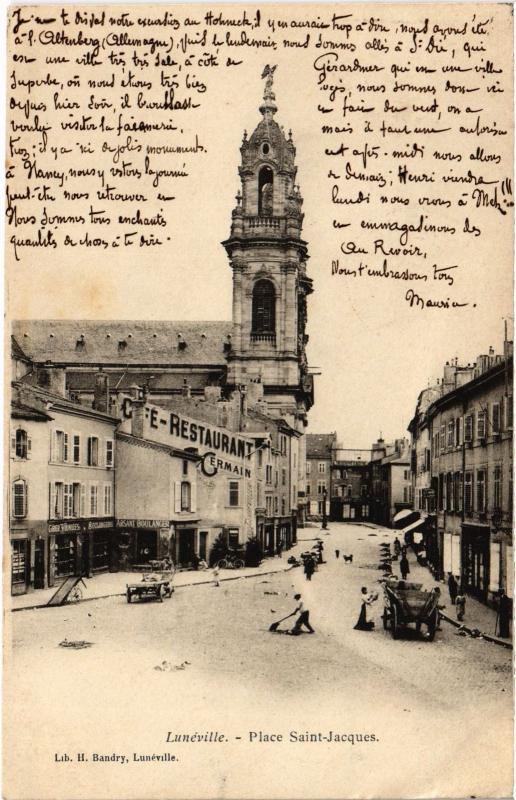 Je ne te dis pas notre excursion au Hohneck, il y en aurait trop à dire, nous avons été
à l'Altenberg (Allemagne), puis le lendemain nous sommes allés à St Dié, qui
est une ville très très sale, à côté de
Gérardmer qui est une ville
superbe, où nous étions très bien
logés, nous sommes donc ici
depuis hier soir, il
en fait du vent, on a
voulu visiter la faïencerie,
mais il faut une autorisa
il y a ici de jolis monuments.
cet après-midi nous allons
à Nancy, nous y restons la journée
de demain; Henri viendra
peut-être nous retrouver en
lundi nous irons à Metz!!!
Nous sommes tous enchantés
en emmagasinons des
quantités de choses à te dire.
Au Revoir,
Nous t'embrassons tous
Maurice.
CAFÉ-RESTAURANT
GERMAIN
BOULANGERIE
Lunéville. - Place Saint-Jacques.
Lib. H. Bandry, Lunéville.